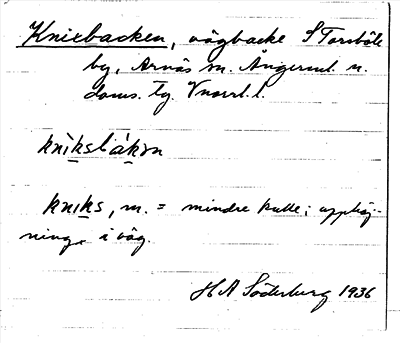 Knixbacken, vägbacke S Torsböle
by, Arnäs sn. Ångerml. n.
doms. tg. Vnorrl. l.
knìkslákɷn
knıks, m. = mindre kulle; upphöj-
ning i väg.
H A Söderberg 1936